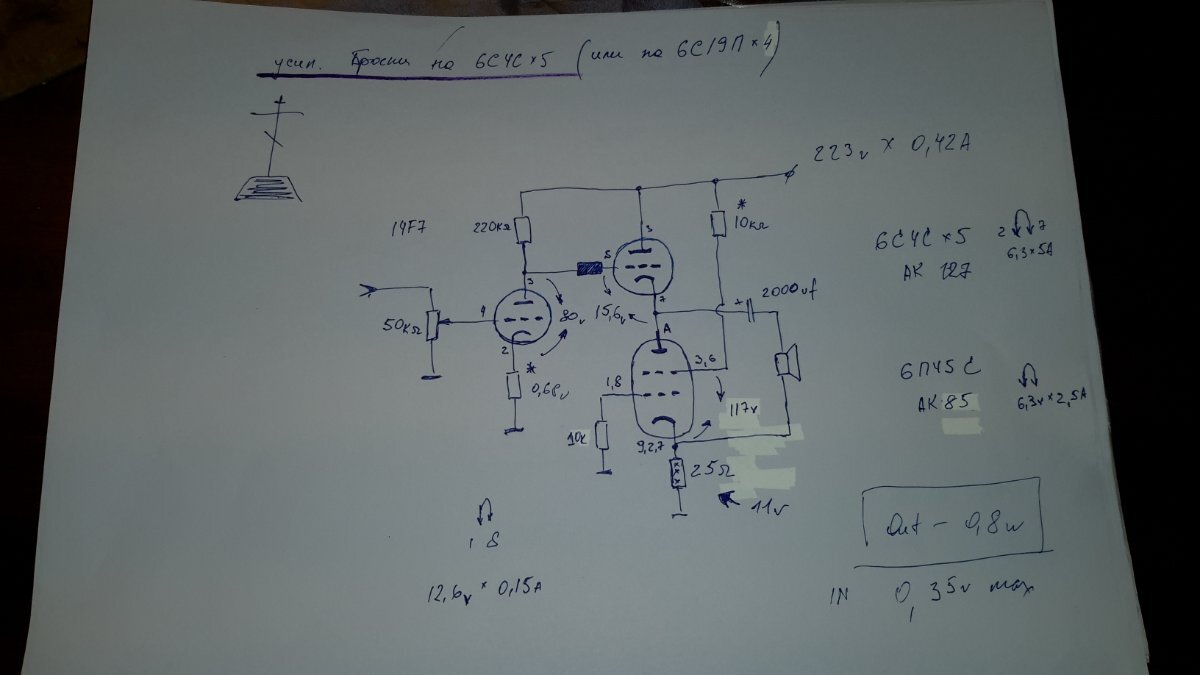 усил. Броски на 6С4С × 5 (или на 6С19П × 4)
223v × 0,42A
14F7
220кΩ
*
10кΩ
3
8
3
6С4С × 5
АК 127
2 7
6,3 × 5A
50кΩ
4
80v
15,6v
7
A
+
2000uf
2
*
0,68v
1,8
3,6
117v
6П45С
АК 85
6,3v × 2,5A
10к
9,2,7
25Ω
11v
1 8
12,6v × 0,15A
Out – 0,8w
IN 0,35v max